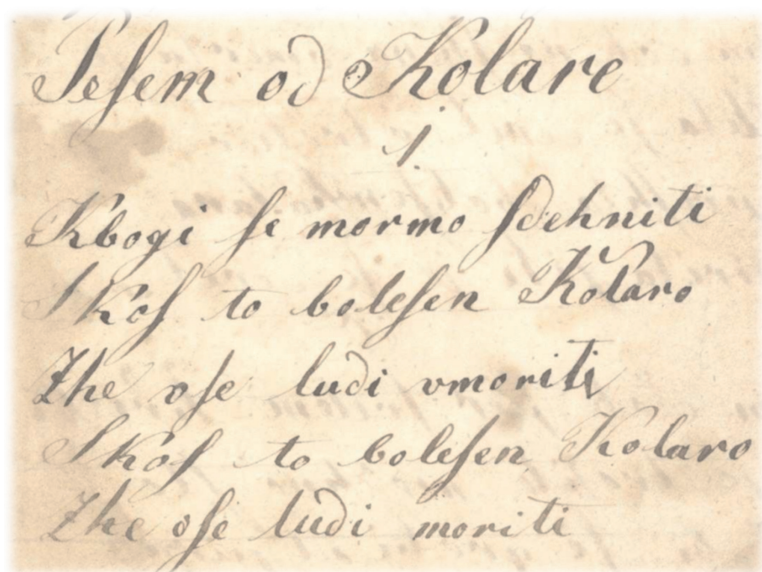 Peſem od Kolare
1.
Kbogi ſe mormo ſdehniti
Skoſ to boleſen Kolaro
Zhe vſe ludi vmoriti
Skoſ to boleſen Kolaro
Zhe vſe ludi moriti